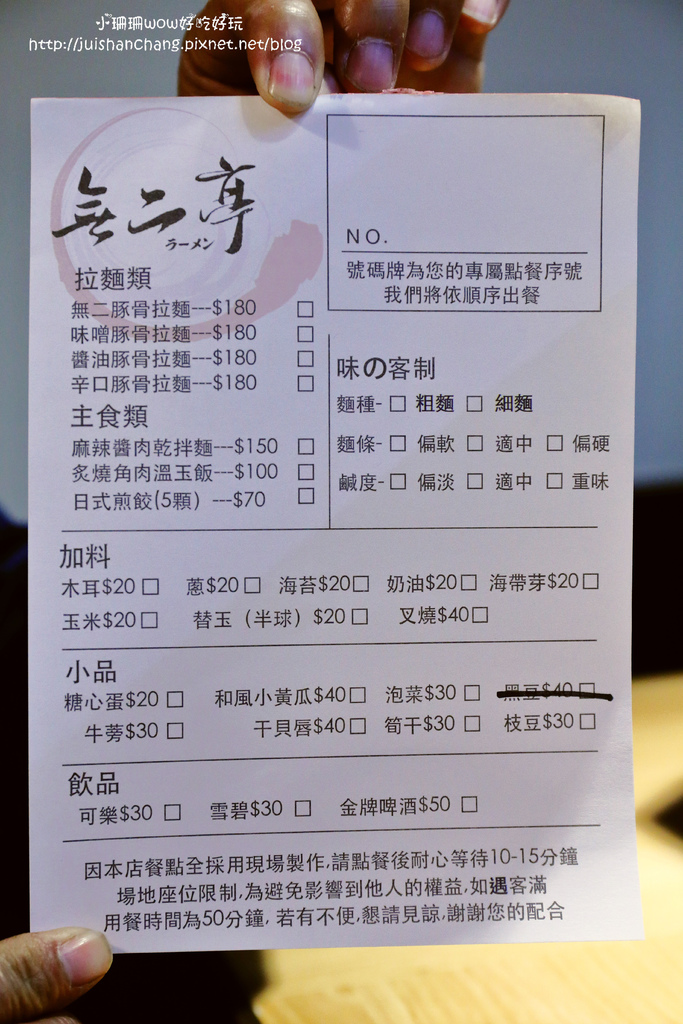 小珊珊wow好吃好玩
http://juishanchang.pixnet.net/blog
無二亭
ラーメン
NO.
號碼牌為您的專屬點餐序號
我們將依順序出餐
拉麵類
無二豚骨拉麵---$180 □
味噌豚骨拉麵---$180 □
醬油豚骨拉麵---$180 □
辛口豚骨拉麵---$180 □
主食類
麻辣醬肉乾拌麵---$150 □
炙燒角肉溫玉飯---$100 □
日式煎餃(5顆) ---$70 □
味の客制
麵種- □ 粗麵 □ 細麵
麵條- □ 偏軟 □ 適中 □ 偏硬
鹹度- □ 偏淡 □ 適中 □ 重味
加料
木耳$20 □ 蔥$20 □ 海苔$20 □ 奶油$20 □ 海帶芽$20 □
玉米$20 □ 替玉（半球）$20 □ 叉燒$40 □
小品
糖心蛋$20 □ 和風小黃瓜$40 □ 泡菜$30 □ 黑豆$40 □
牛蒡$30 □ 干貝唇$40 □ 筍干$30 □ 枝豆$30 □
飲品
可樂$30 □ 雪碧$30 □ 金牌啤酒$50 □
因本店餐點全採用現場製作,請點餐後耐心等待10-15分鐘
場地座位限制,為避免影響到他人的權益,如遇客滿
用餐時間為50分鐘, 若有不便,懇請見諒,謝謝您的配合